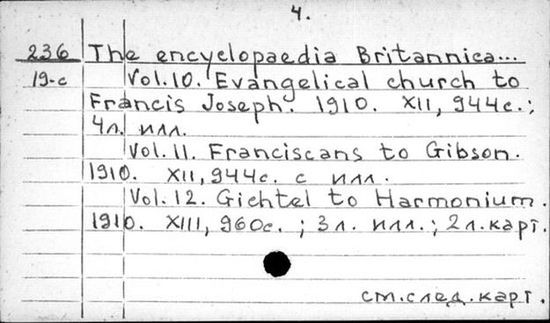 4.
236 The encyclopaedia Britannica...
19-c Vol.10. Evangelical church to
Francis Joseph. 1910. XII, 944c.;
4л. илл.
Vol.11. Franciscans to Gibson.
1910. XII, 944c. с илл.
Vol.12. Gichtel to Harmonium.
1910. XIII, 960c.; 3л. илл.; 2л.карт.
см.след.карт.